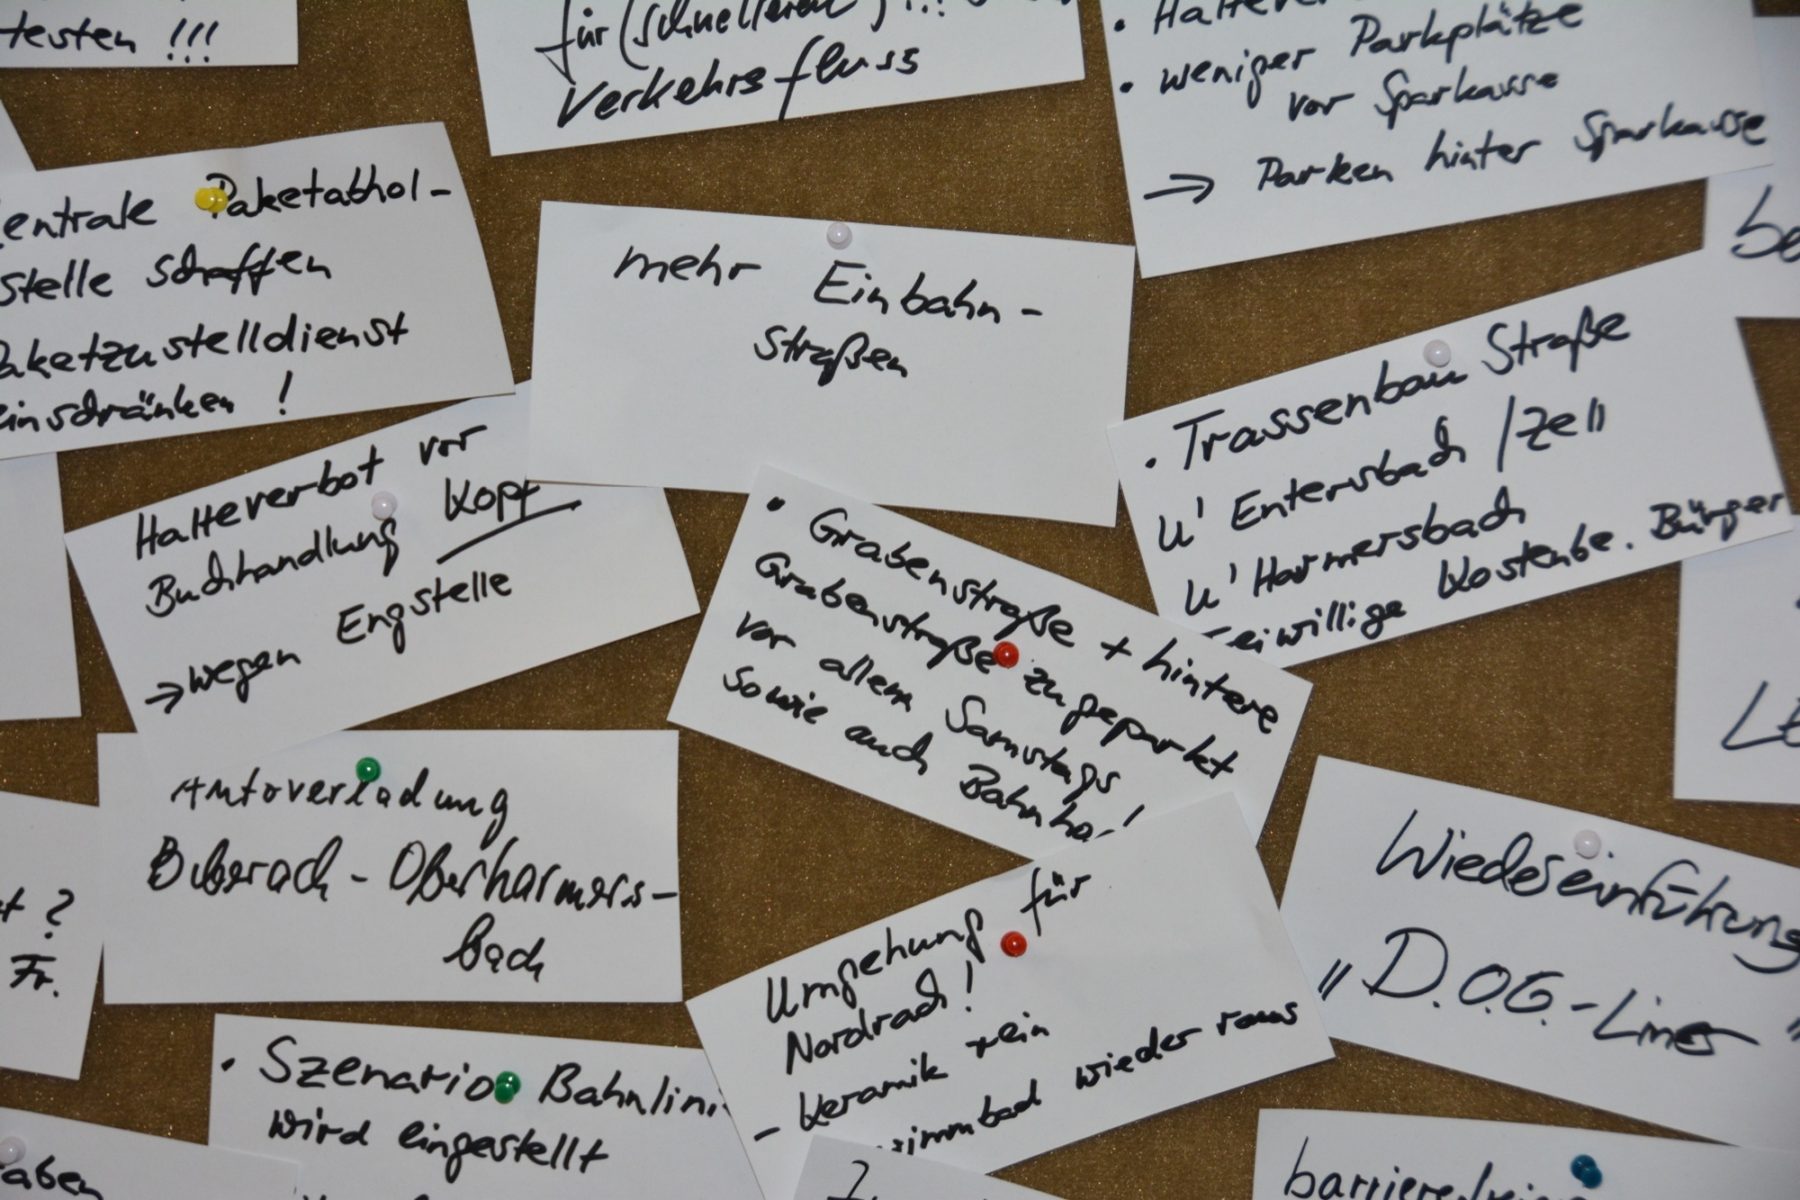 testen !!!
für (schnelleren)
Verkehrsfluss
• weniger Parkplätze
vor Sparkasse
→ Parken hinter Sparkasse
entrale Paketabhol-
stelle schaffen
aketzustelldienst
einschränken !
mehr Einbahn-
straßen
be
• Trassenbau Straße
U' Entersbach / Zell
U' Harmersbach
eiwillige Kostenbe. Bürger
Halteverbot vor
Buchhandlung Kopf
→ wegen Engstelle
• Grabenstraße + hintere
Grabenstraße zugeparkt
vor allem Samstags
sowie auch Bahnho !
Autoverladung
Biberach - Oberharmers-
bach
t ?
Fr.
Umgehung für
Nordrach !
- Keramik rein
immbad wieder raus
Wiedereinführung
"D.O.G.-Linie"
• Szenario Bahnlini
wird eingestellt
aben
barrierefrei